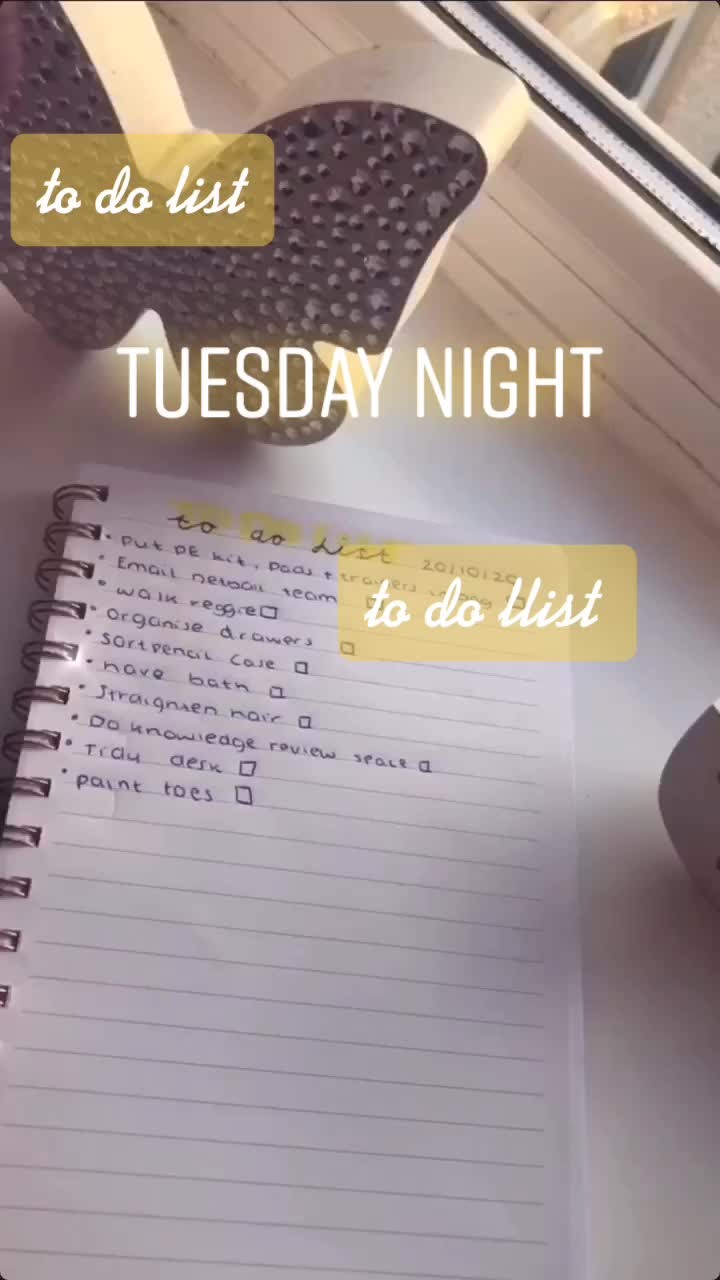 to do list
TUESDAY NIGHT
to do list 20/10/20
• Put PE kit, pads + trayers in bag
• Email netball team
to do llist
• walk reggie
• organise drawers
• sort pencil case
• have bath
• straighten hair
• Do knowledge review space
• Tidy desk
• paint toes